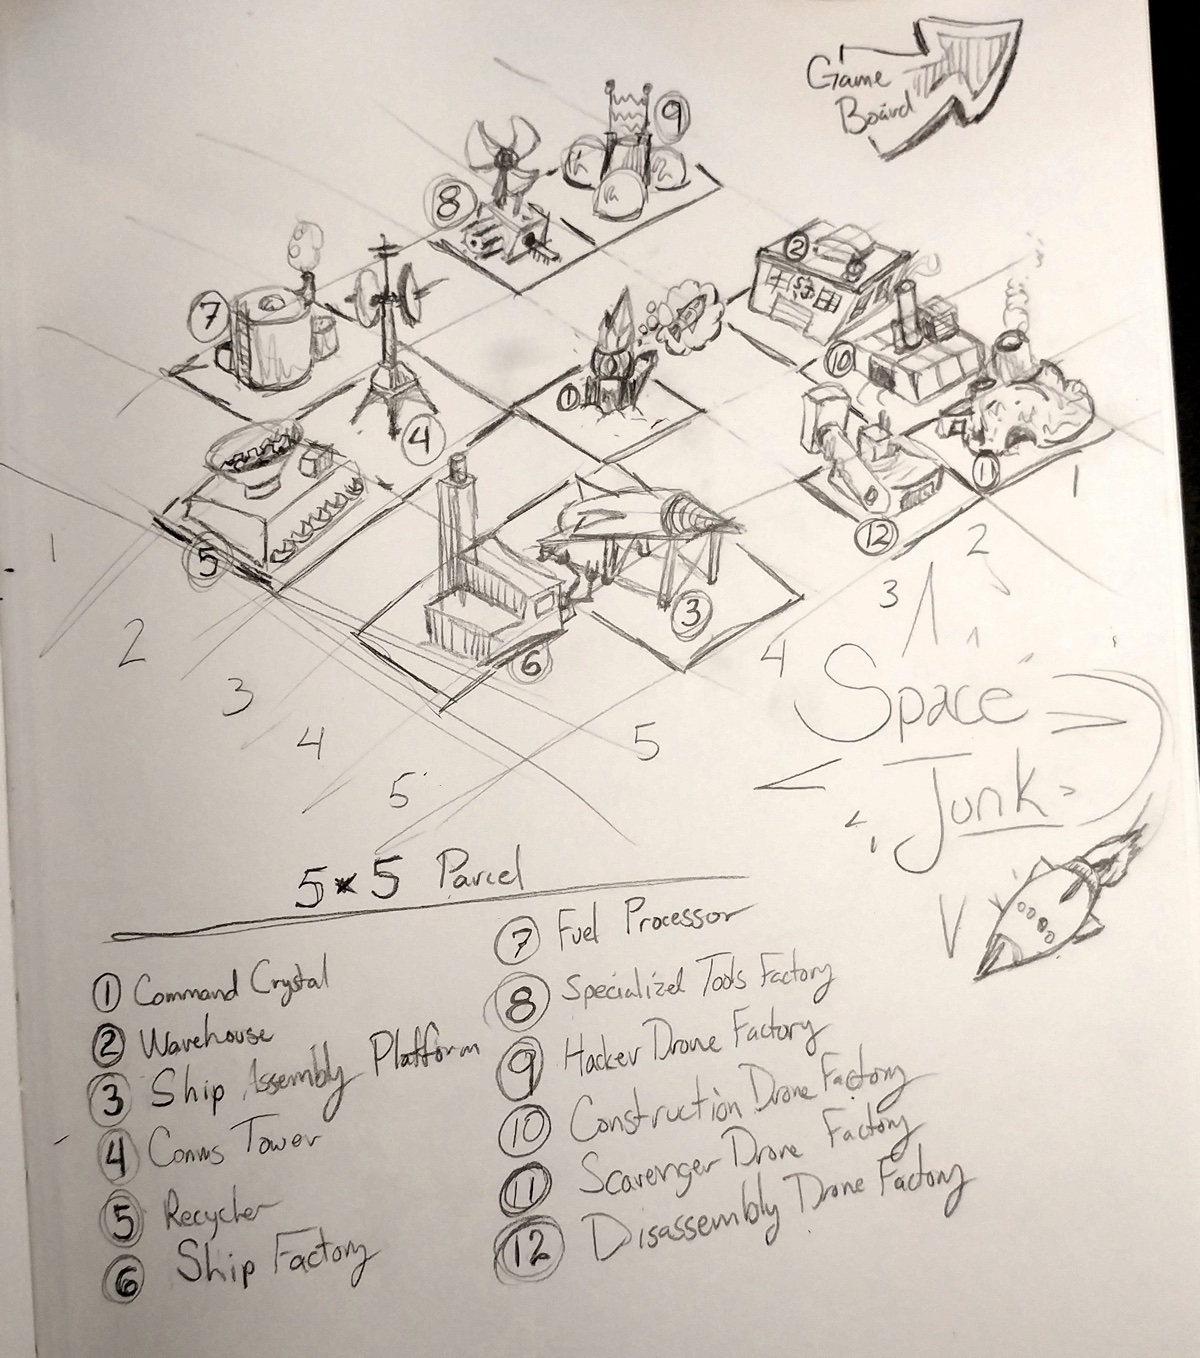 Game
Board
9
8
2
7
10
1
4
11
1
5
12
2
3
3
1
6
4
2
3
5
4
5
Space
Junk
5x5 Parcel
1 Command Crystal
2 Warehouse
3 Ship Assembly Platform
4 Comms Tower
5 Recycler
6 Ship Factory
7 Fuel Processor
8 Specialized Tools Factory
9 Hacker Drone Factory
10 Construction Drone Factory
11 Scavenger Drone Factory
12 Disassembly Drone Factory